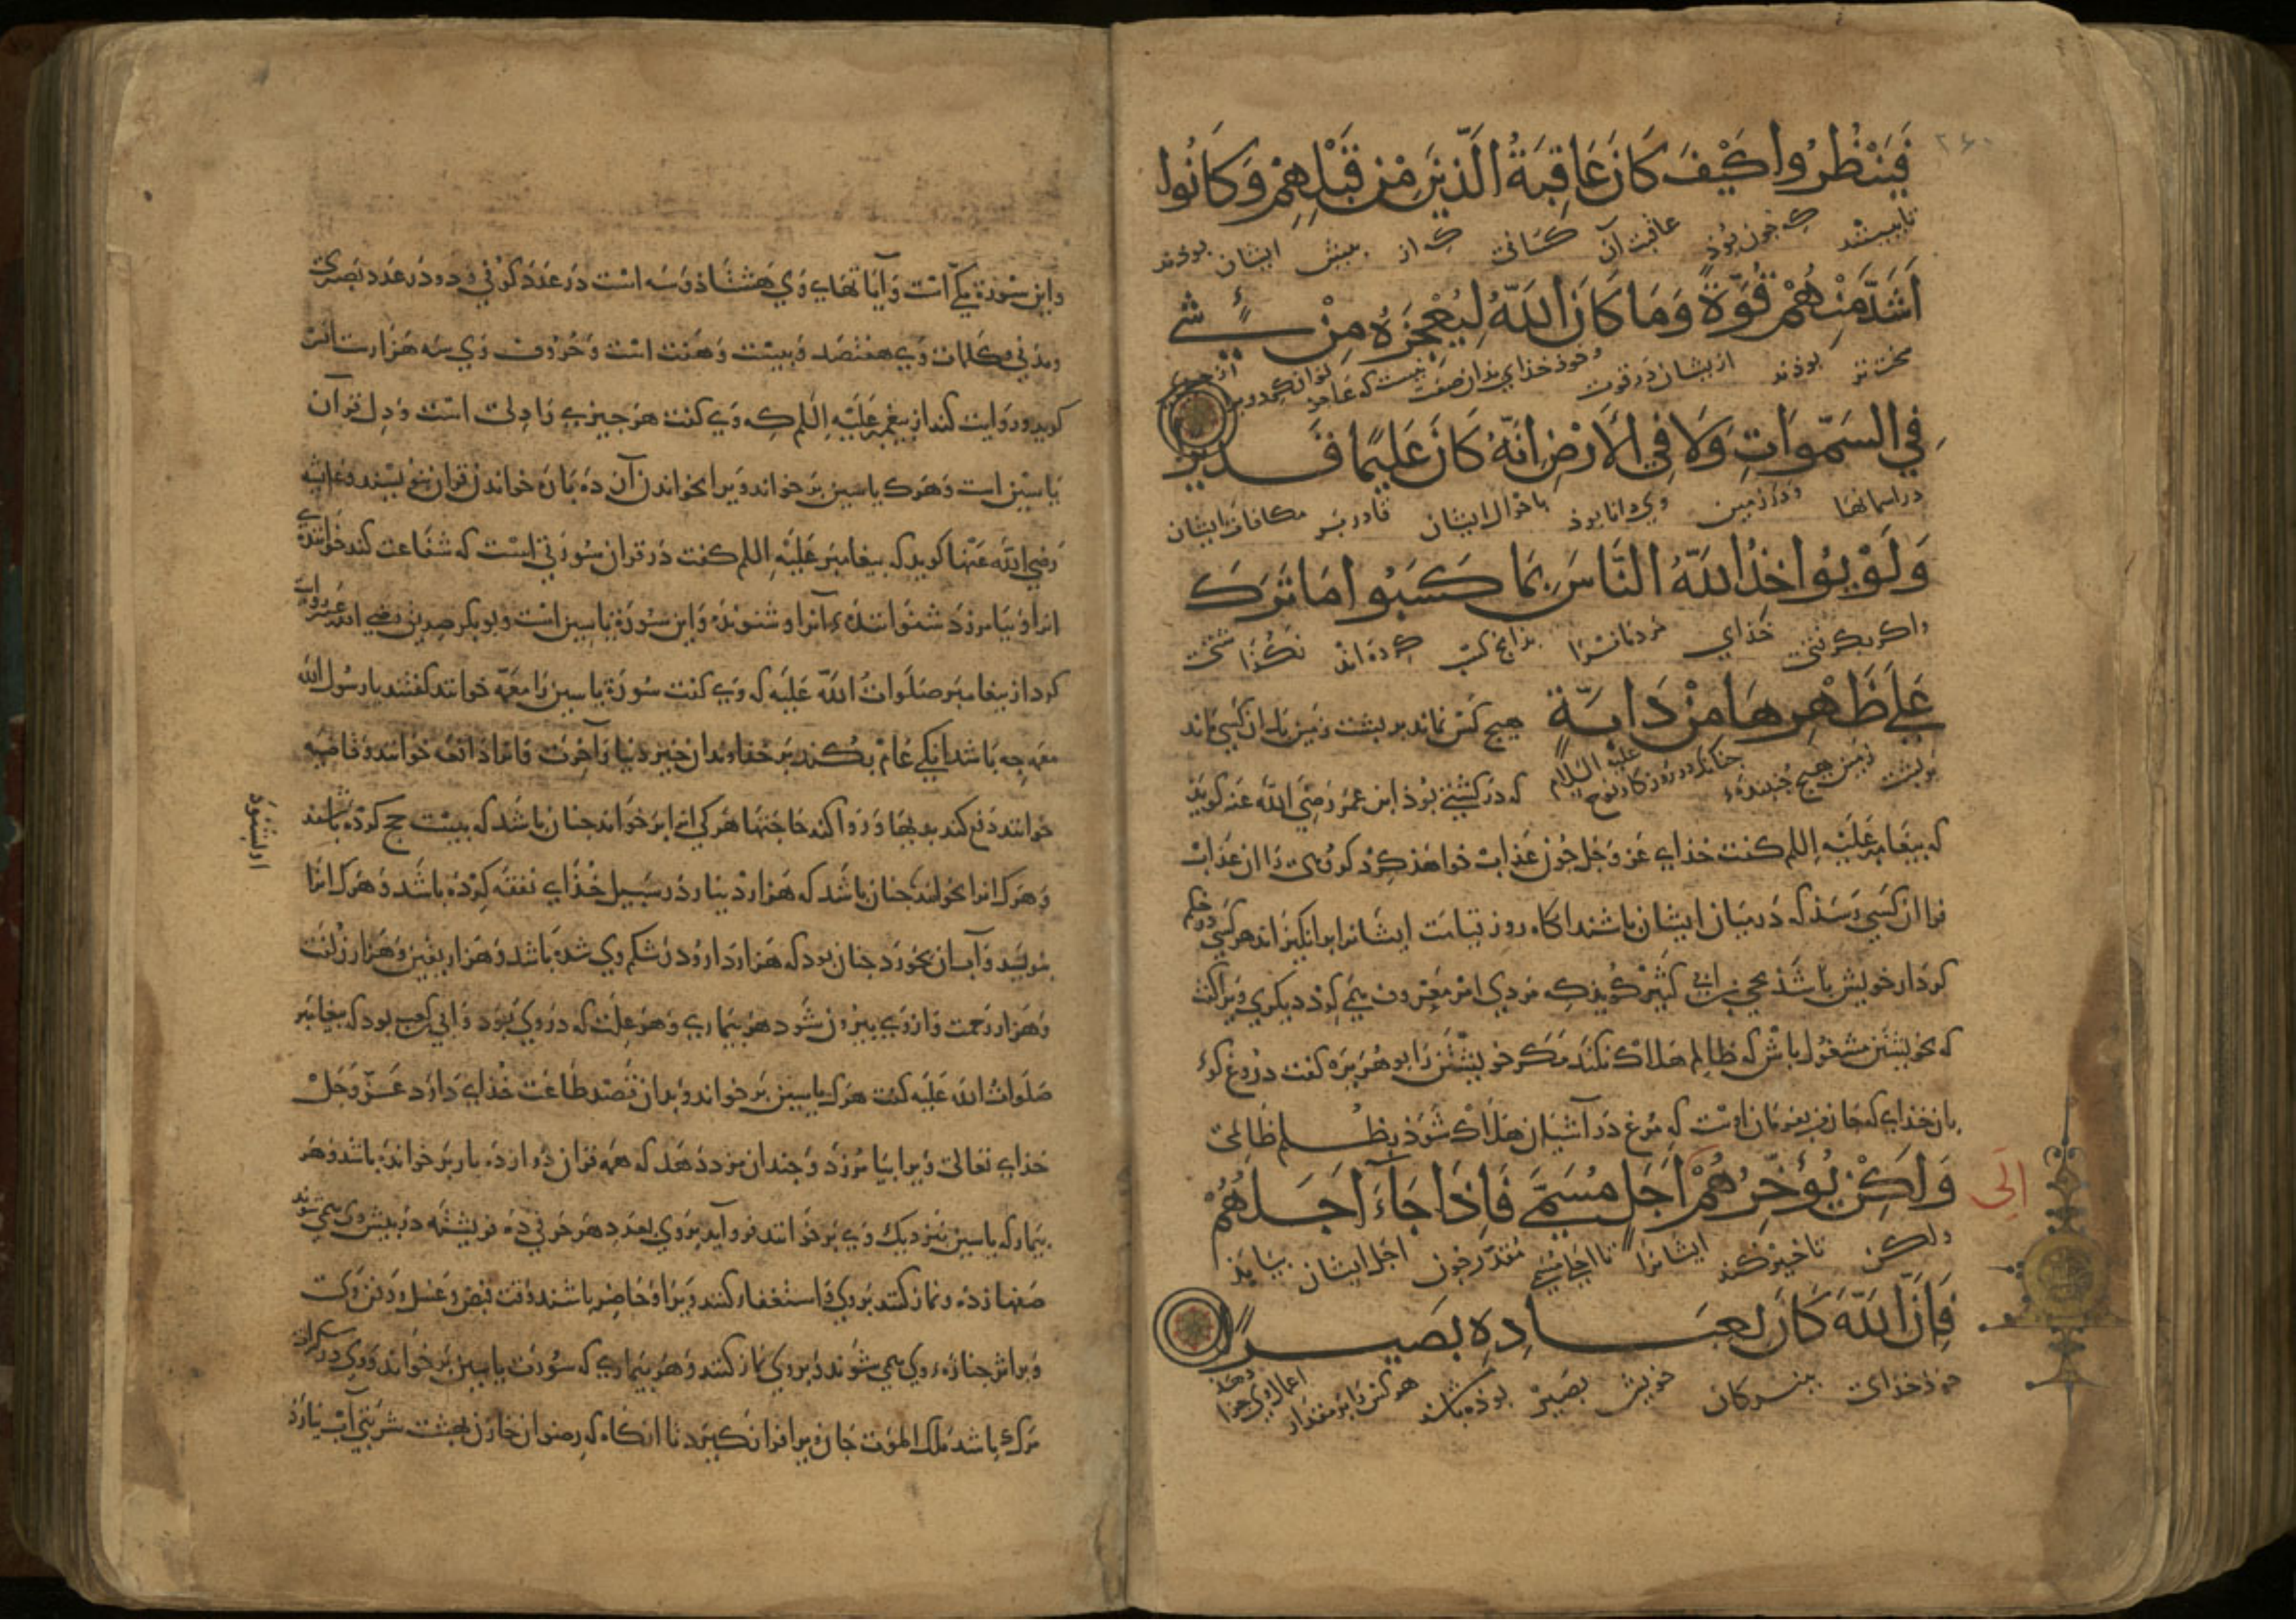 فَيَنْظُرُوا كَيْفَ كَانَ عَاقِبَةُ الَّذِينَ مِنْ قَبْلِهِمْ وَكَانُوا
تا ببینند که جون بوذ عاقبت آن کسانی که از بیش ایشان بوذند
اَشَدَّ مِنْهُمْ قُوَّةً وَمَا كَانَ اللَّهُ لِيُعْجِزَهُ مِنْ شَيْءٍ
سخت تر بوذند از ایشان در قوت و خوذ خذای بذان صفت نیست که عاجز توان کرد ویرا از جیزی
فِي السَّمٰوَاتِ وَلَا فِي الْاَرْضِ اِنَّهُ كَانَ عَلِيمًا قَدِيرًا
در اسمانها و در زمین وی دانا بوذ باحوال ایشان قادر بر مکافات ایشان
وَلَوْ يُؤَاخِذُ اللَّهُ النَّاسَ بِمَا كَسَبُوا مَا تَرَكَ
و اکر بکرفتی خذای مردمانرا بذانج کسب کرده اند نکذاشتی
عَلَى ظَهْرِهَا مِنْ دَابَّةٍ هیج کس نماند بر بشت زمین مکر ان کسی ماند
بر بشت زمین هیج جنبنده جنانکه در روزکار نوح علیه السلام که در کشتی بوذ ابن عمر رضی الله عنه کوید
که بیغامبر علیه السلم کفت خذای عز و جل جون عذاب خواهذ کرد کروهی را ان عذاب
فرا ان کسی رسذ که در میان ایشان باشند انکاه روز قیامت ایشانرا برانکیزاند هر کسی در حکم
کردار خویش باشذ یحیی بن ابی کثیر کویذ که مردی امر معروف میکرد دیکری ویرا کفت
که بخویشتن مشغول باش که ظالم هلاک نکند مکر خویشتن را بوهریره کفت دروغ کوئ
بان خذای که جان من بفرمان اوست که مرغ در آشیان هلاک شوذ بظلم ظالمی
وَلٰكِنْ يُؤَخِّرُهُمْ اَجَلٍ مُسَمًّى فَاِذَا جَاءَ اَجَلُهُمْ
اِلَى
ولکن تاخیر کند ایشانرا تا اجل مسمی مقدر جون اجل ایشان بیایذ
فَاِنَّ اللَّهَ كَانَ بِعِبَادِهِ بَصِيرًا
خوذ خذای ببندکان خویش بصیر بوذه باشد هر کس را بر مقدار اعمال وی جزا دهد
و این سورة مکی است و آیاتهای وی هشتاذ و سه است در عدد کوفی و دو در عدد بصری
و مدنی و کلمات وی هفتصد و بیست و هفت است و حروف وی سه هزارست انس
کوید و روایت کند از بیغمبر علیه السلم که وی کفت هر جیزی را دلی است و دل قرآن
یاسین است و هرک یاسین بر خواند ویرا بخواندن آن ده باره خواندن قران بنویسند و عایشه
رضی الله عنها کوید که بیغامبر علیه السلم کفت در قران سورتی است که شفاعت کند خواننده
انرا و بیامرزد شنواننده آنرا و شنونده و این سورة یاسین است و بوبکر صدیق رضی الله عنه روایت
کرد از بیغامبر صلوات الله علیه که وی کفت سورة یاسین را معمه خوانند کفتند یا رسول الله
معمه جه باشد انکی عام بکند بر خداوند ان خیر دنیا و آخرت و انرا دافعه خوانند و قاضیه
خوانند دفع کند بدیها و روا کند حاجتها هر کی انرا بر خواند جنان باشد که بیست حج کرده باشد
و هرک انرا بخواند جنان باشد که هزار دینار در سبیل خذای نفقه کرده باشد و هرک انرا
او بشنود
بنویسد و آب ان بخورد جنان بود که هزار دارو در شکم وی شده باشد و هزار یقین و هزار زلفت
و هزار رحمت و از وی بیرون شود هر بیماری و هر علت که در وی بود و ابی کعب بود که بیغامبر
صلوات الله علیه کفت هرک یاسین بر خواند و بدان قصد طاعت خذای دارد عز و جل
خذای تعالی ویرا بیامرزد و جندان مزد دهد که همه قران دوازده بار بر خوانده باشد و هر
بیمار که یاسین نزدیک وی بر خوانند فرو آید بر وی بعدد هر حرفی ده فریشته در بیش وی می شوند
صفها زده و نماز کنند بر وی و استغفار کنند ویرا و حاضر باشند وقت قبض و غسل و دفن وی
و بر اثر جنازه وی می شوند و بر وی نماز کنند و هر بیماری که سورت یاسین بر خواند و وی در سکرات
مرک باشد ملک الموت جان ویرا فرا نکیرد تا انکاه که رضوان خازن بهشت شربتی آب بیارد